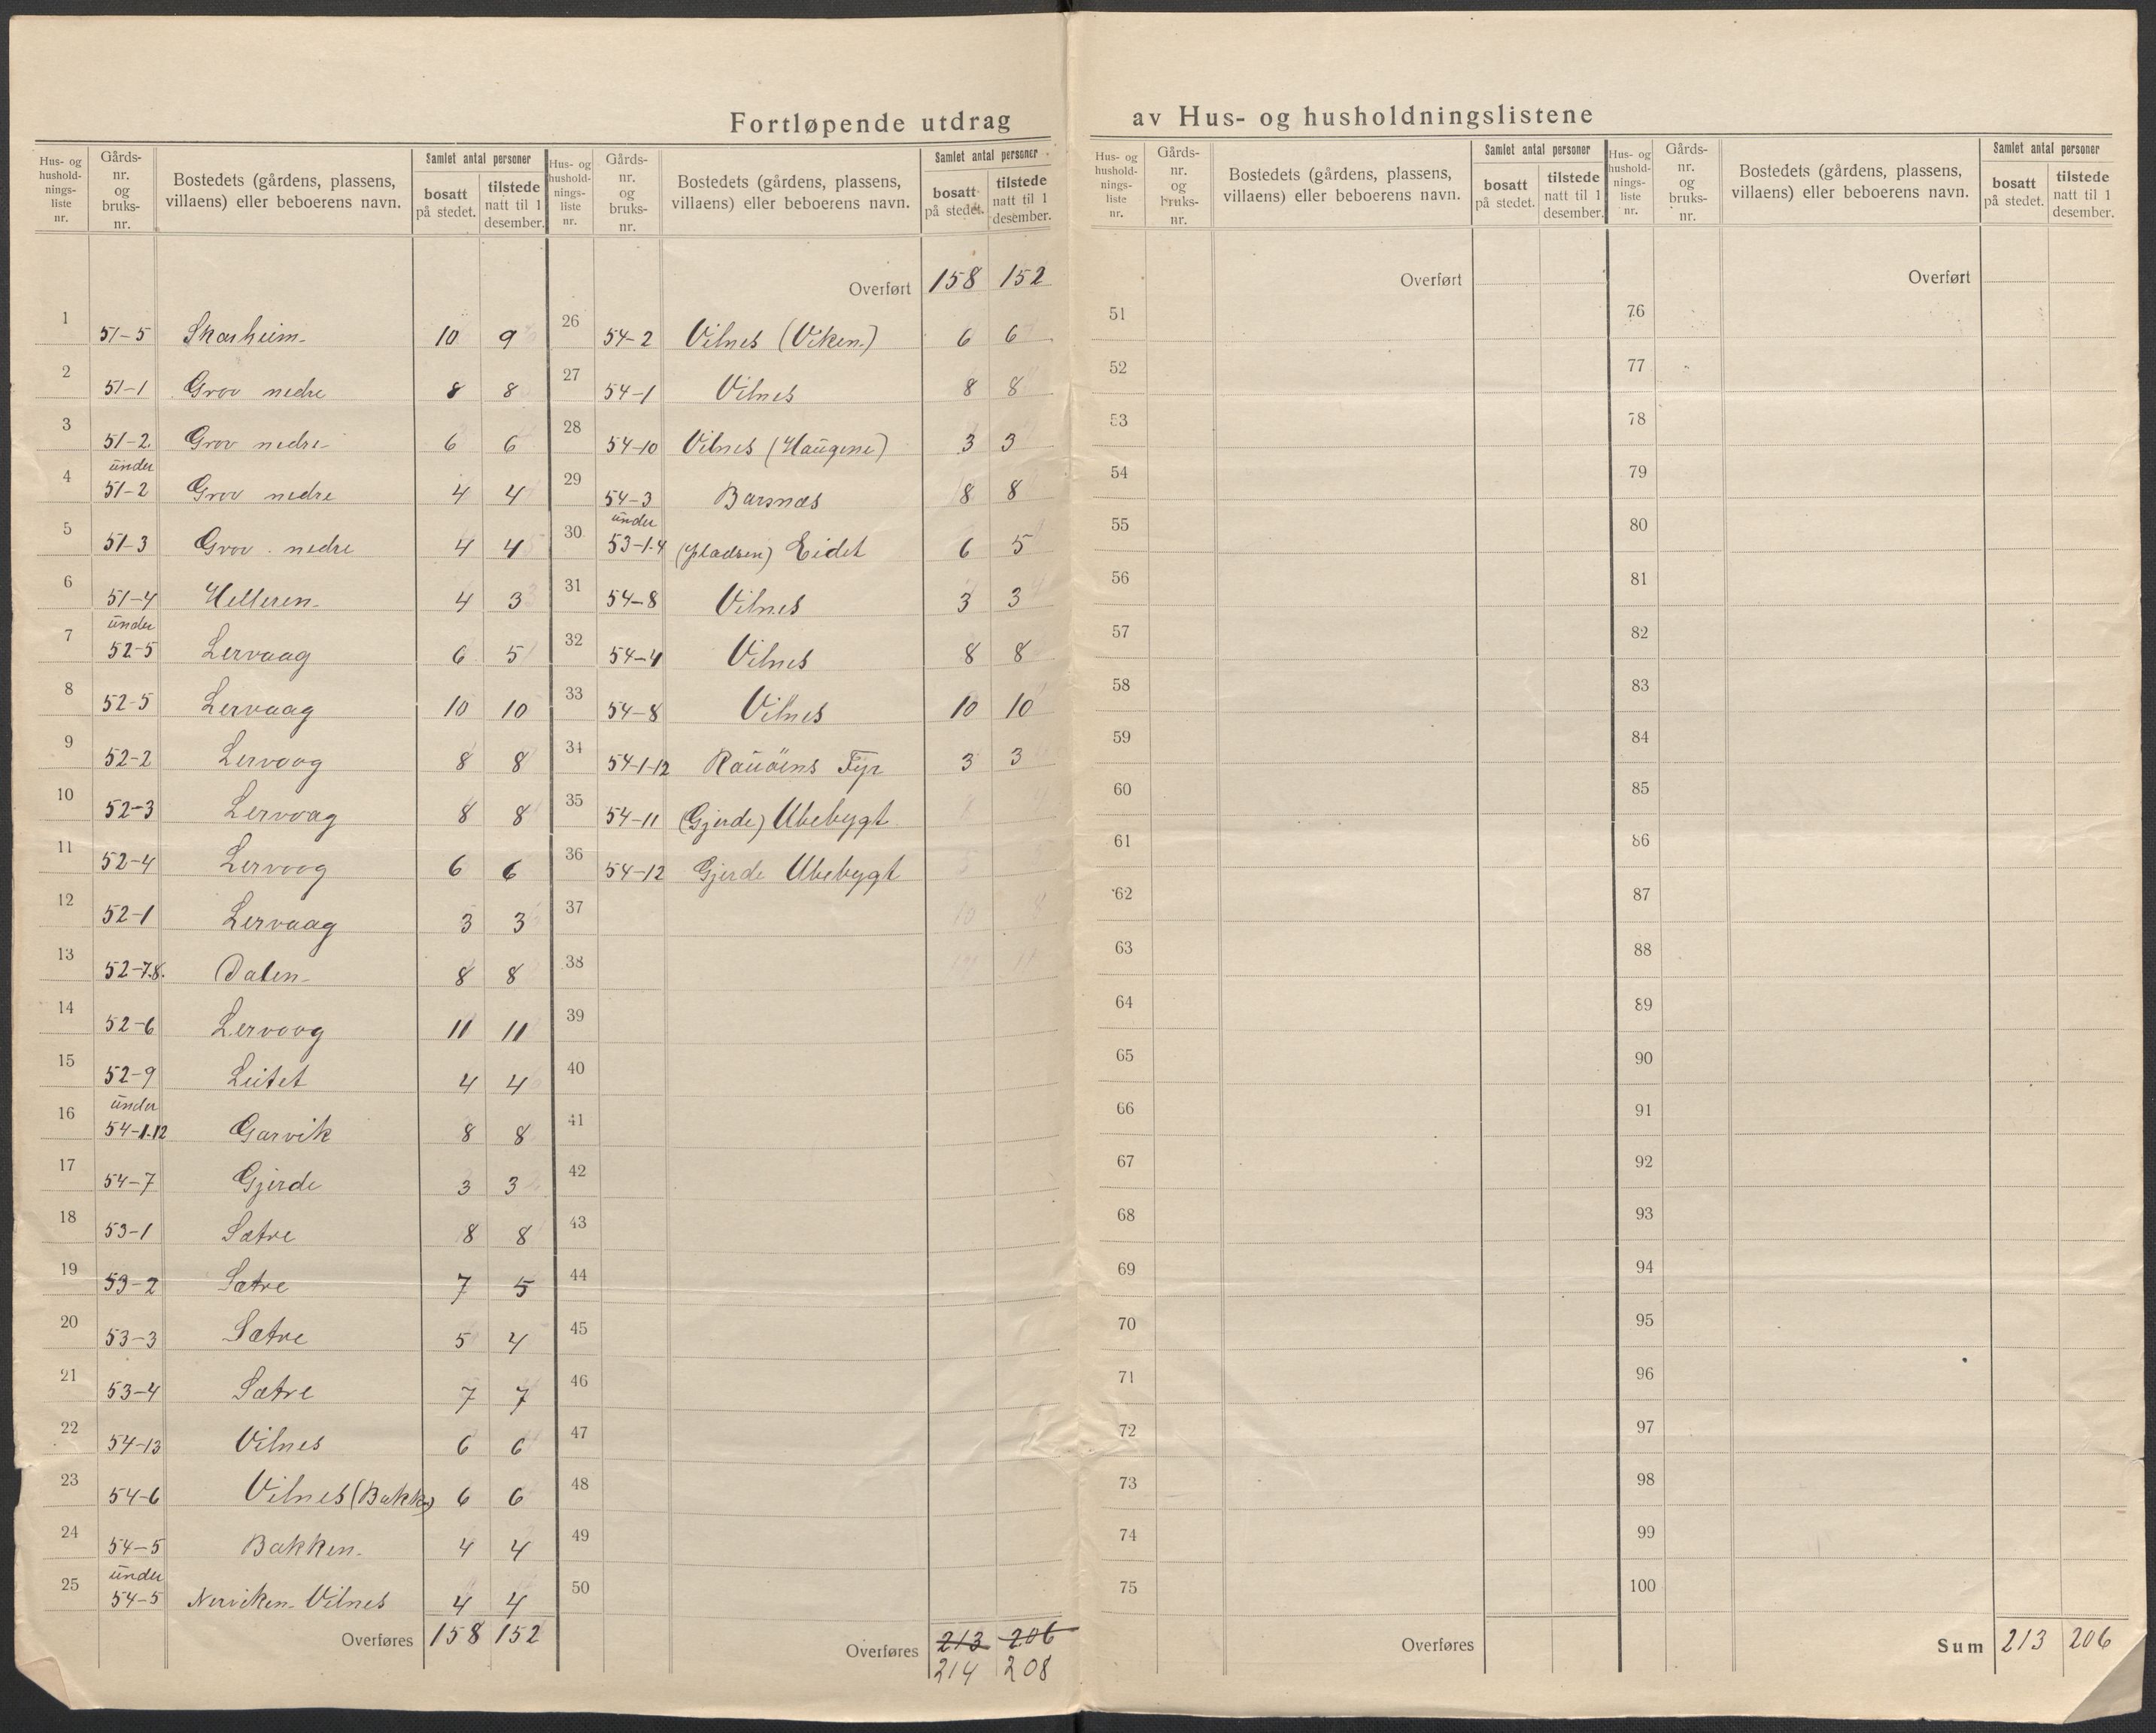 Fortløpende utdrag av Hus- og husholdningslistene
Hus- og hushold-nings-liste nr. | Gårds-nr. og bruks-nr. | Bostedets (gårdens, plassens, villaens) eller beboerens navn. | Samlet antal personer | bosatt på stedet. | tilstede natt til 1 desember.
1 51-5 Skarheim 10 9
2 51-1 Grov nedre 8 8
3 51-2 Grov nedre 6 6
4 under 51-2 Grov nedre 4 4
5 51-3 Grov nedre 4 4
6 51-4 Helleren 4 3
7 under 52-5 Lervaag 6 5
8 52-5 Lervaag 10 10
9 52-2 Lervoog 8 8
10 52-3 Lervoag 8 8
11 52-4 Lervoog 6 6
12 52-1 Lervaag 3 3
13 52-7.8. Dalen 8 8
14 52-6 Lervoog 11 11
15 52-9 Leitet 4 4
16 under 54-1.12 Garvik 8 8
17 54-7 Gjerde 3 3
18 53-1 Sætre 8 8
19 53-2 Sætre 7 5
20 53-3 Sætre 5 4
21 53-4 Sætre 7 7
22 54-13 Vilnes 6 6
23 54-6 Vilnes (Bakke) 6 6
24 54-5 Bakken 4 4
25 under 54-5 Nerviken Vilnes 4 4
Overføres 158 152
Hus- og hushold-nings-liste nr. | Gårds-nr. og bruks-nr. | Bostedets (gårdens, plassens, villaens) eller beboerens navn. | Samlet antal personer | bosatt på stedet. | tilstede natt til 1 desember.
Overført 158 152
26 54-2 Vilnes (Viken) 6 6
27 54-1 Vilnes 8 8
28 54-10 Vilnes (Haugene) 3 3
29 54-3 Barsnæs 8 8
30 under 53-1.4 (pladsen) Eidet 6 5
31 54-8 Vilnes 3 3
32 54-4 Vilnes 8 8
33 54-8 Vilnes 10 10
34 54-1-12 Rauöens Fyr 3 3
35 54-11 (Gjerde) Ubebygt
36 54-12 Gjerde Ubebygt
37
38
39
40
41
42
43
44
45
46
47
48
49
50
Overføres 213 206
214 208
Hus- og hushold-nings-liste nr. | Gårds-nr. og bruks-nr. | Bostedets (gårdens, plassens, villaens) eller beboerens navn. | Samlet antal personer | bosatt på stedet. | tilstede natt til 1 desember.
Overført
51
52
53
54
55
56
57
58
59
60
61
62
63
64
65
66
67
68
69
70
71
72
73
74
75
Overføres
Hus- og hushold-nings-liste nr. | Gårds-nr. og bruks-nr. | Bostedets (gårdens, plassens, villaens) eller beboerens navn. | Samlet antal personer | bosatt på stedet. | tilstede natt til 1 desember.
Overført
76
77
78
79
80
81
82
83
84
85
86
87
88
89
90
91
92
93
94
95
96
97
98
99
100
Sum 213 206